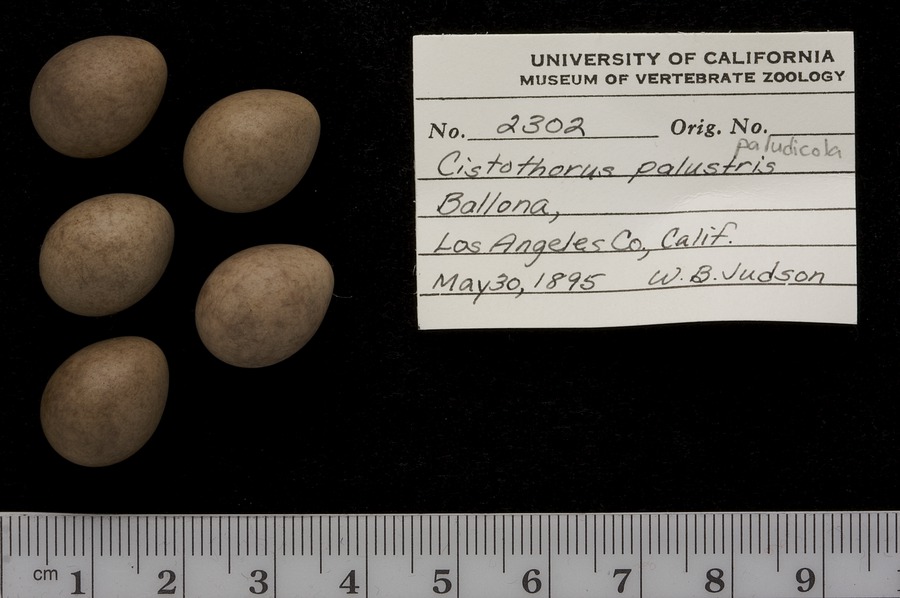 UNIVERSITY OF CALIFORNIA
MUSEUM OF VERTEBRATE ZOOLOGY
No. 2302 Orig. No.
paludicola
Cistothorus palustris
Ballona,
Los Angeles Co., Calif.
May 30, 1895 W. B. Judson
cm 1 2 3 4 5 6 7 8 9 1